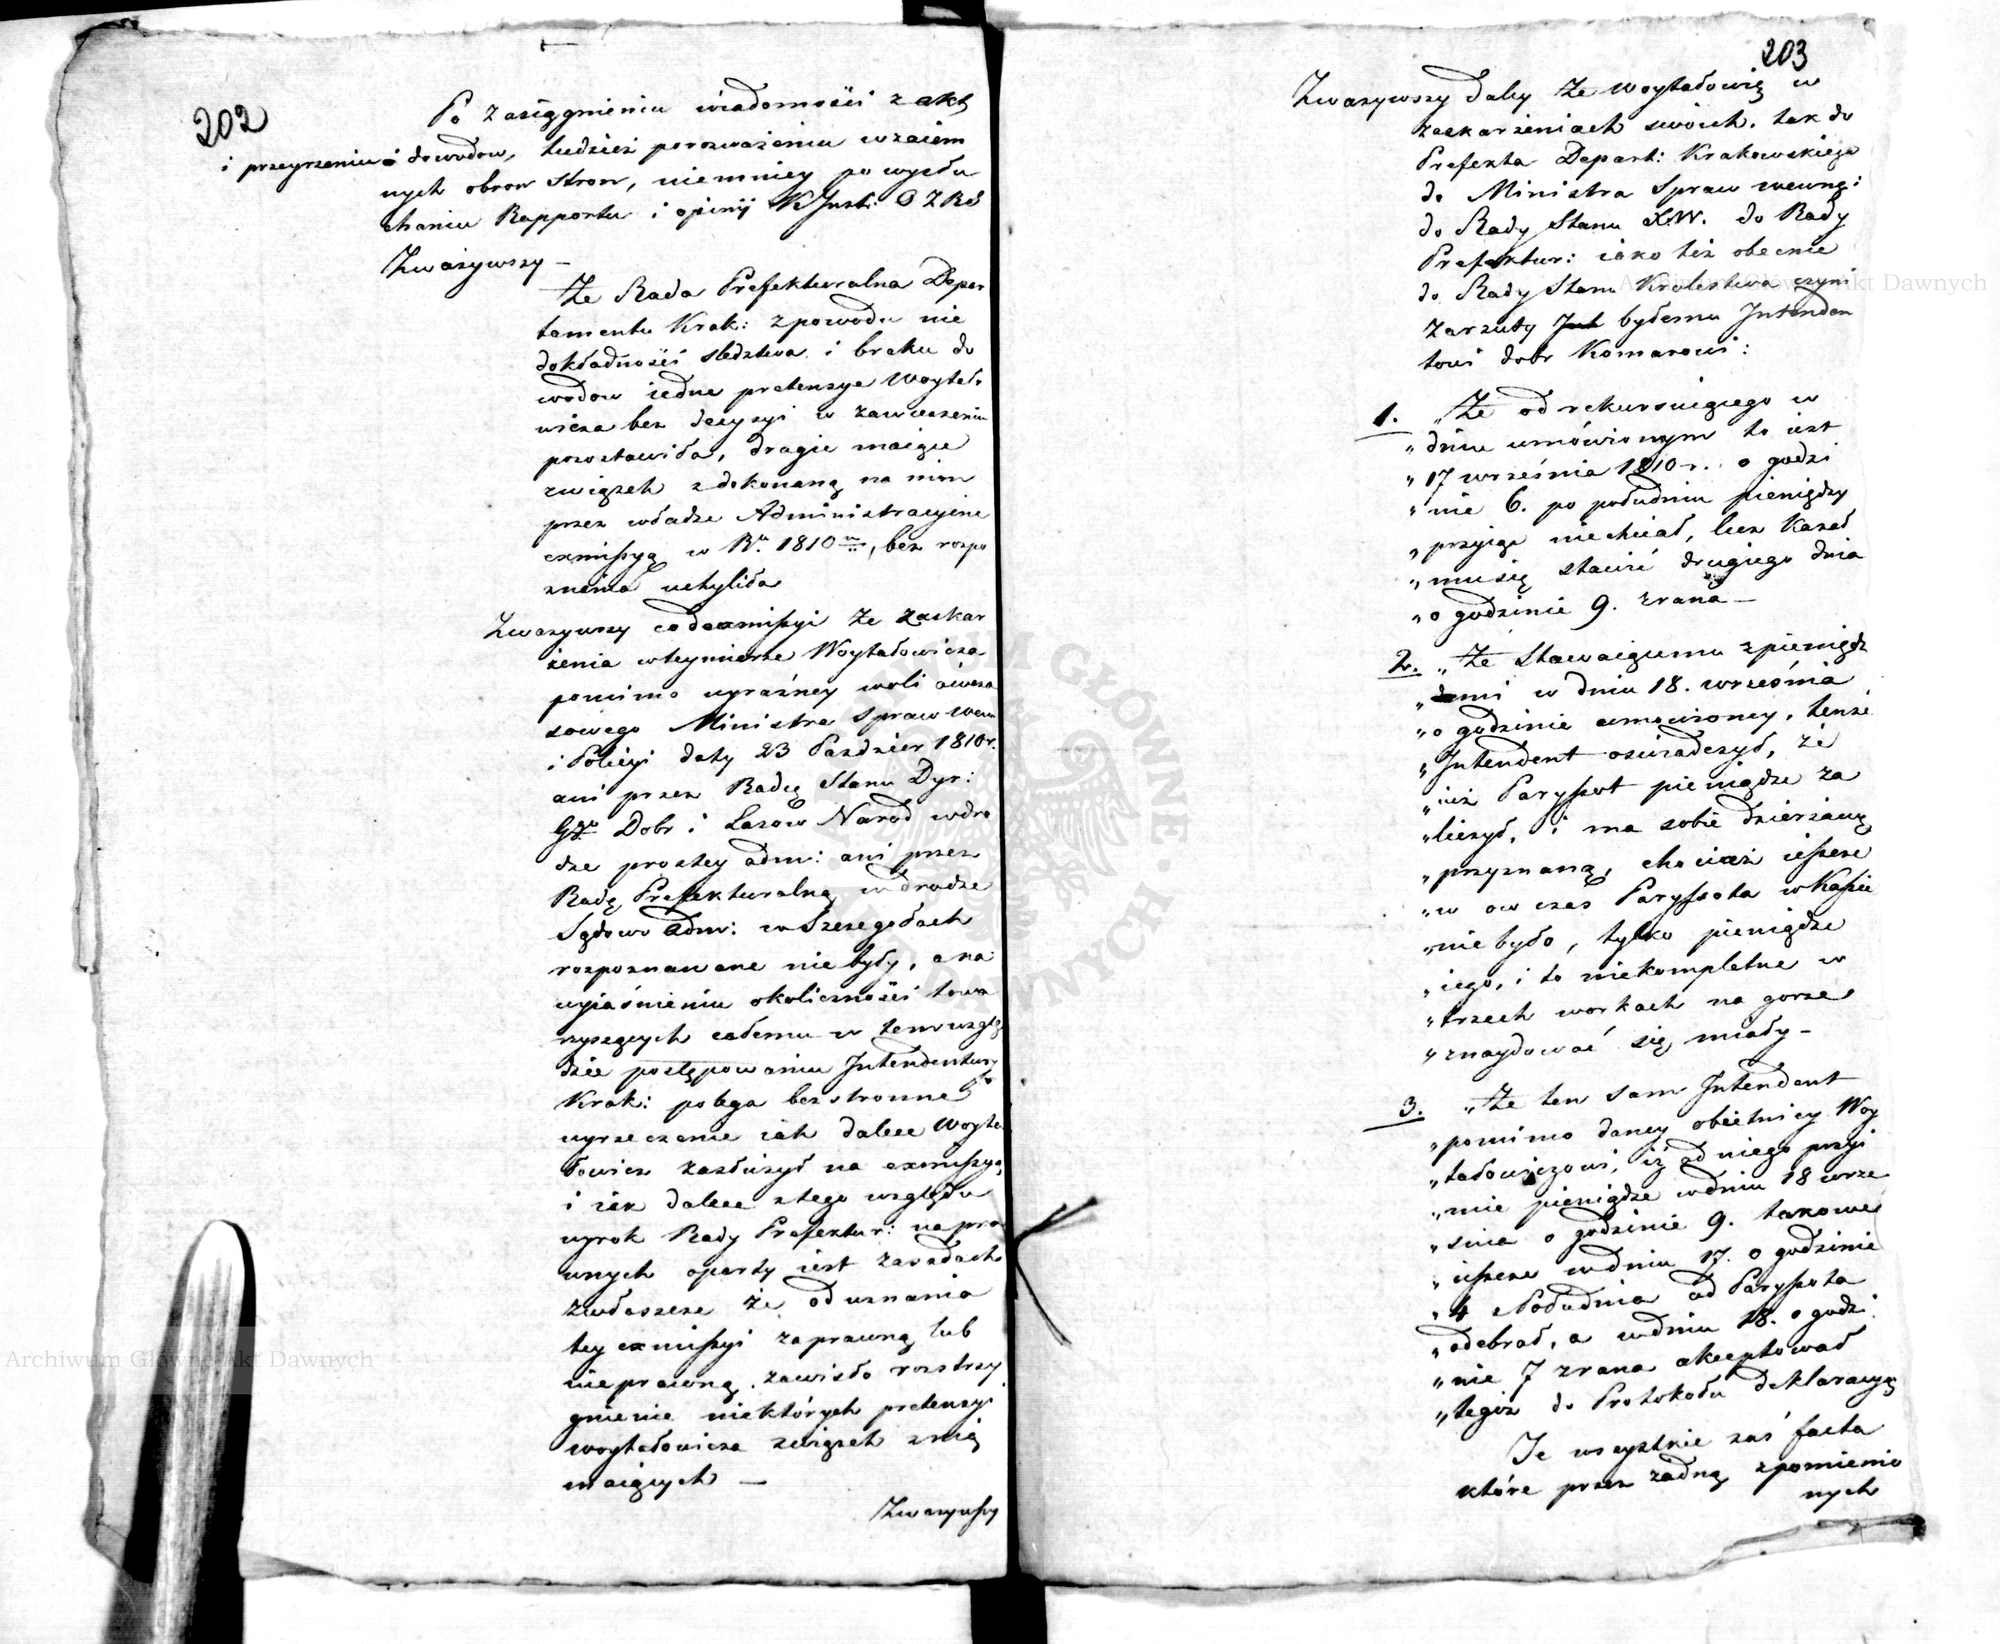 202
Po zasięgnieniu wiadomości z akt
i przeyrzeniu dowodow, tudzież porozważeniu wzaiem
nych obron stron, niemniey po wysłu
chaniu Rapportu i opinij
Zważywszy –
Że Rada Prefekturalna Depar
tamentu Krak: z powodu nie
dokładności śledztwa i braku do
wodow iedne pretensye Woytało
wicza bez decyzyi w zawieszeniu
pozostawiła, drugie maiące
związek z dokonaną na nim
przez władze Administracyine
exmissyą w R. 1810, bez rozpo
znania uchyliła
Zważywszy co do exmissyi że zaskar
żenia w teymierze Woytałowicza
pomimo wyraźney woli ówcza
sowego Ministra Spraw Wewn
i Policyi daty 23 Pazdzier 1810 r.
ani przez Radę Stanu Dyr:
Dobr i Lasow Narod w dro
dze prostey adm: ani przez
Radę Prefekturalną w drodze
Sądowo adm: w Szczegołach
rozpoznawane nie były, a na
wyjaśnieniu okoliczności towa
rzyszących całemu w tem wzglę
dzie postępowaniu Intendentury
Krak: polega bezstronne
wyrzeczenie iak dalece Woyta
łowicz zasłużył na exmissyą
i iak dalece z tego względu
wyrok Rady Prefektur: na pra
wnych oparty iest zasadach
zwłaszcza że od uznania
tey exmissyi za prawną lub
nieprawną zawisło rozstrzy
gnienie niektórych pretensyi
Woytałowicza związek z nią
maiących —
Zważywszy
203
Zważywszy daley że Woytałowicz w
zaskarżeniach swoich, tak do
Prefekta Depart: Krakowskiego
do Ministra Spraw wewnę:
do Rady Stanu X.W. do Rady
Prefektur: iako też obecnie
do Rady Stanu Krolestwa czyni
zarzuty byłemu Intenden
towi dobr Komarowi:
1. „Że od rekursuiącego w
„dniu umówionym to iest
„17 września 1810 r. o godzi
„nie 6. po południu pieniędzy
„przyiąć niechciał, lecz kazał
„mu się stawić drugiego dnia
„o godzinie 9. zrana –
2. „Że Stawaiącemu z pienięd
„zmi w dniu 18. września
„o godzinie umowioney, tenże
„Intendent oswiadczył, że
„iuż Paryssot pieniądze za
„liczył, i ma sobie dzierżawę
„przyznaną, chociaż ieszcze
„w ow czas Paryssota w Kassie
„nie było, tylko pieniądze
„iego, i to niekompletne w
„trzech workach na gorze
„znaydować się miały –
3. „Że ten sam Intendent
„pomimo daney obietnicy Woy
„tałowiczowi, iż od niego przyi
„mie pieniądze w dniu 18 wrze
„snia o godzinie 9. takowe
„ieszcze w dniu 17. o godzinie
„4 z Południa od Paryssota
„odebrał, a w dniu 18. o godzi
„nie 7 zrana akceptował
„tegoż do Protokołu deklaracyą
Te wszystkie zaś facta
które przez żadną z pomienio
nych